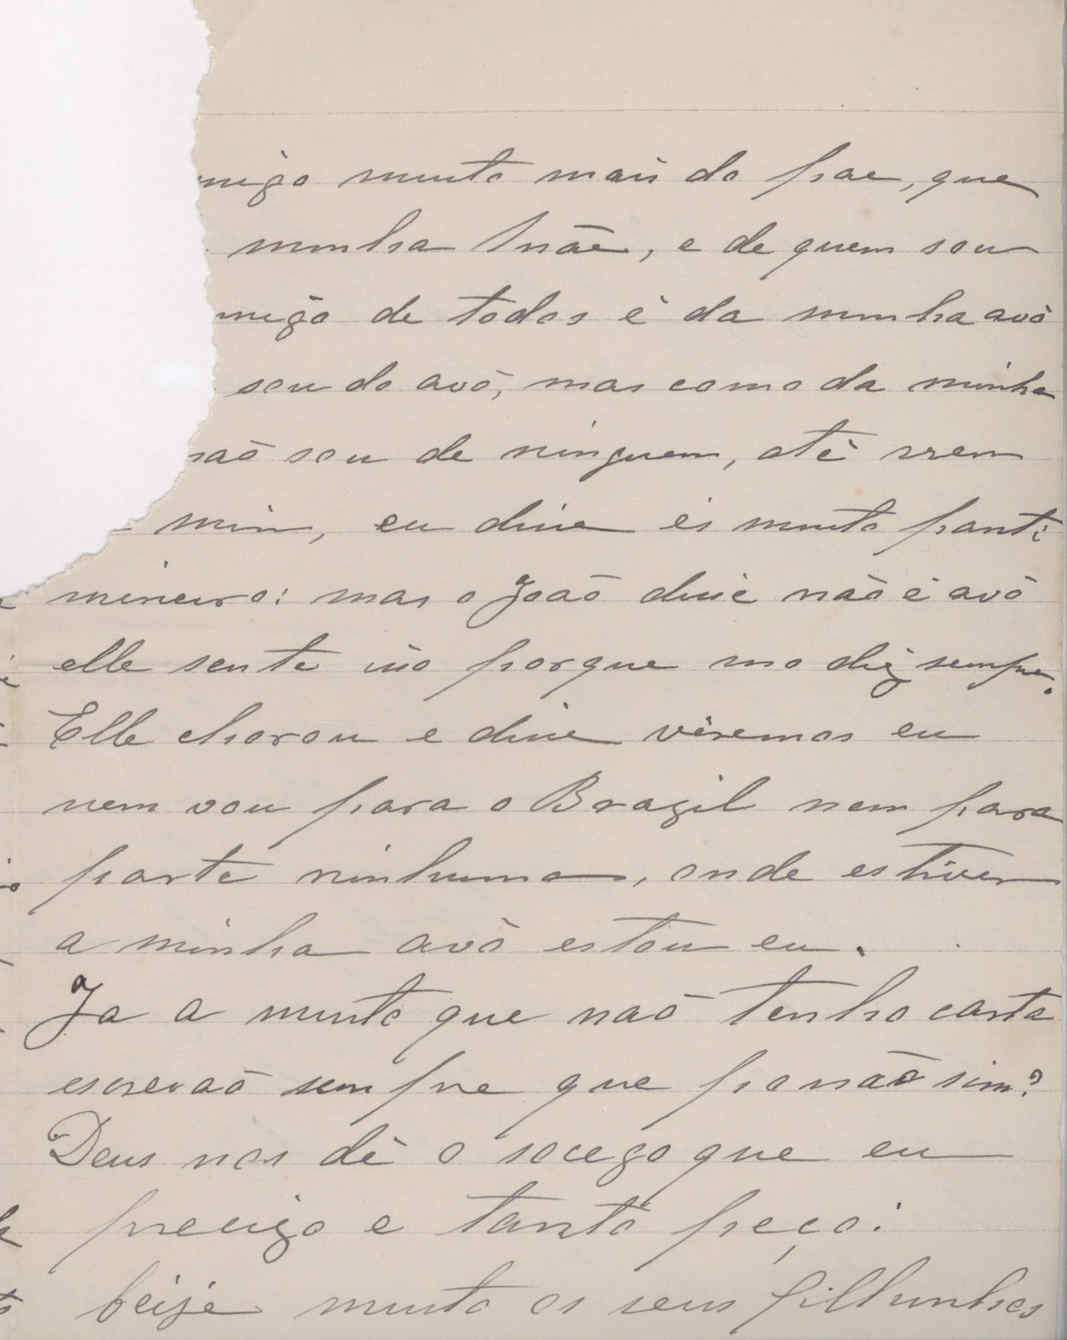 migo muito mais do pae, que
minha Mãe, e de quem sou
migo de todos é da minha avó
sou do avô, mas como da minha
não sou de ninguem, até vem
mim, eu disse és muito panti
mineiro: mas o João disse não é avó
elle sente isso porque mo diz sempre.
Elle chorou e disse vêremos eu
nem vou para o Brazil nem para
parte ninhuma, onde estiver
a minha avó estou eu.
Ja a muito que não tenho carta
escrevaõ sempre que possaõ sim?
Deus nos dê o socego que eu
precizo e tanto peço.
beije muito os seus filhinhos